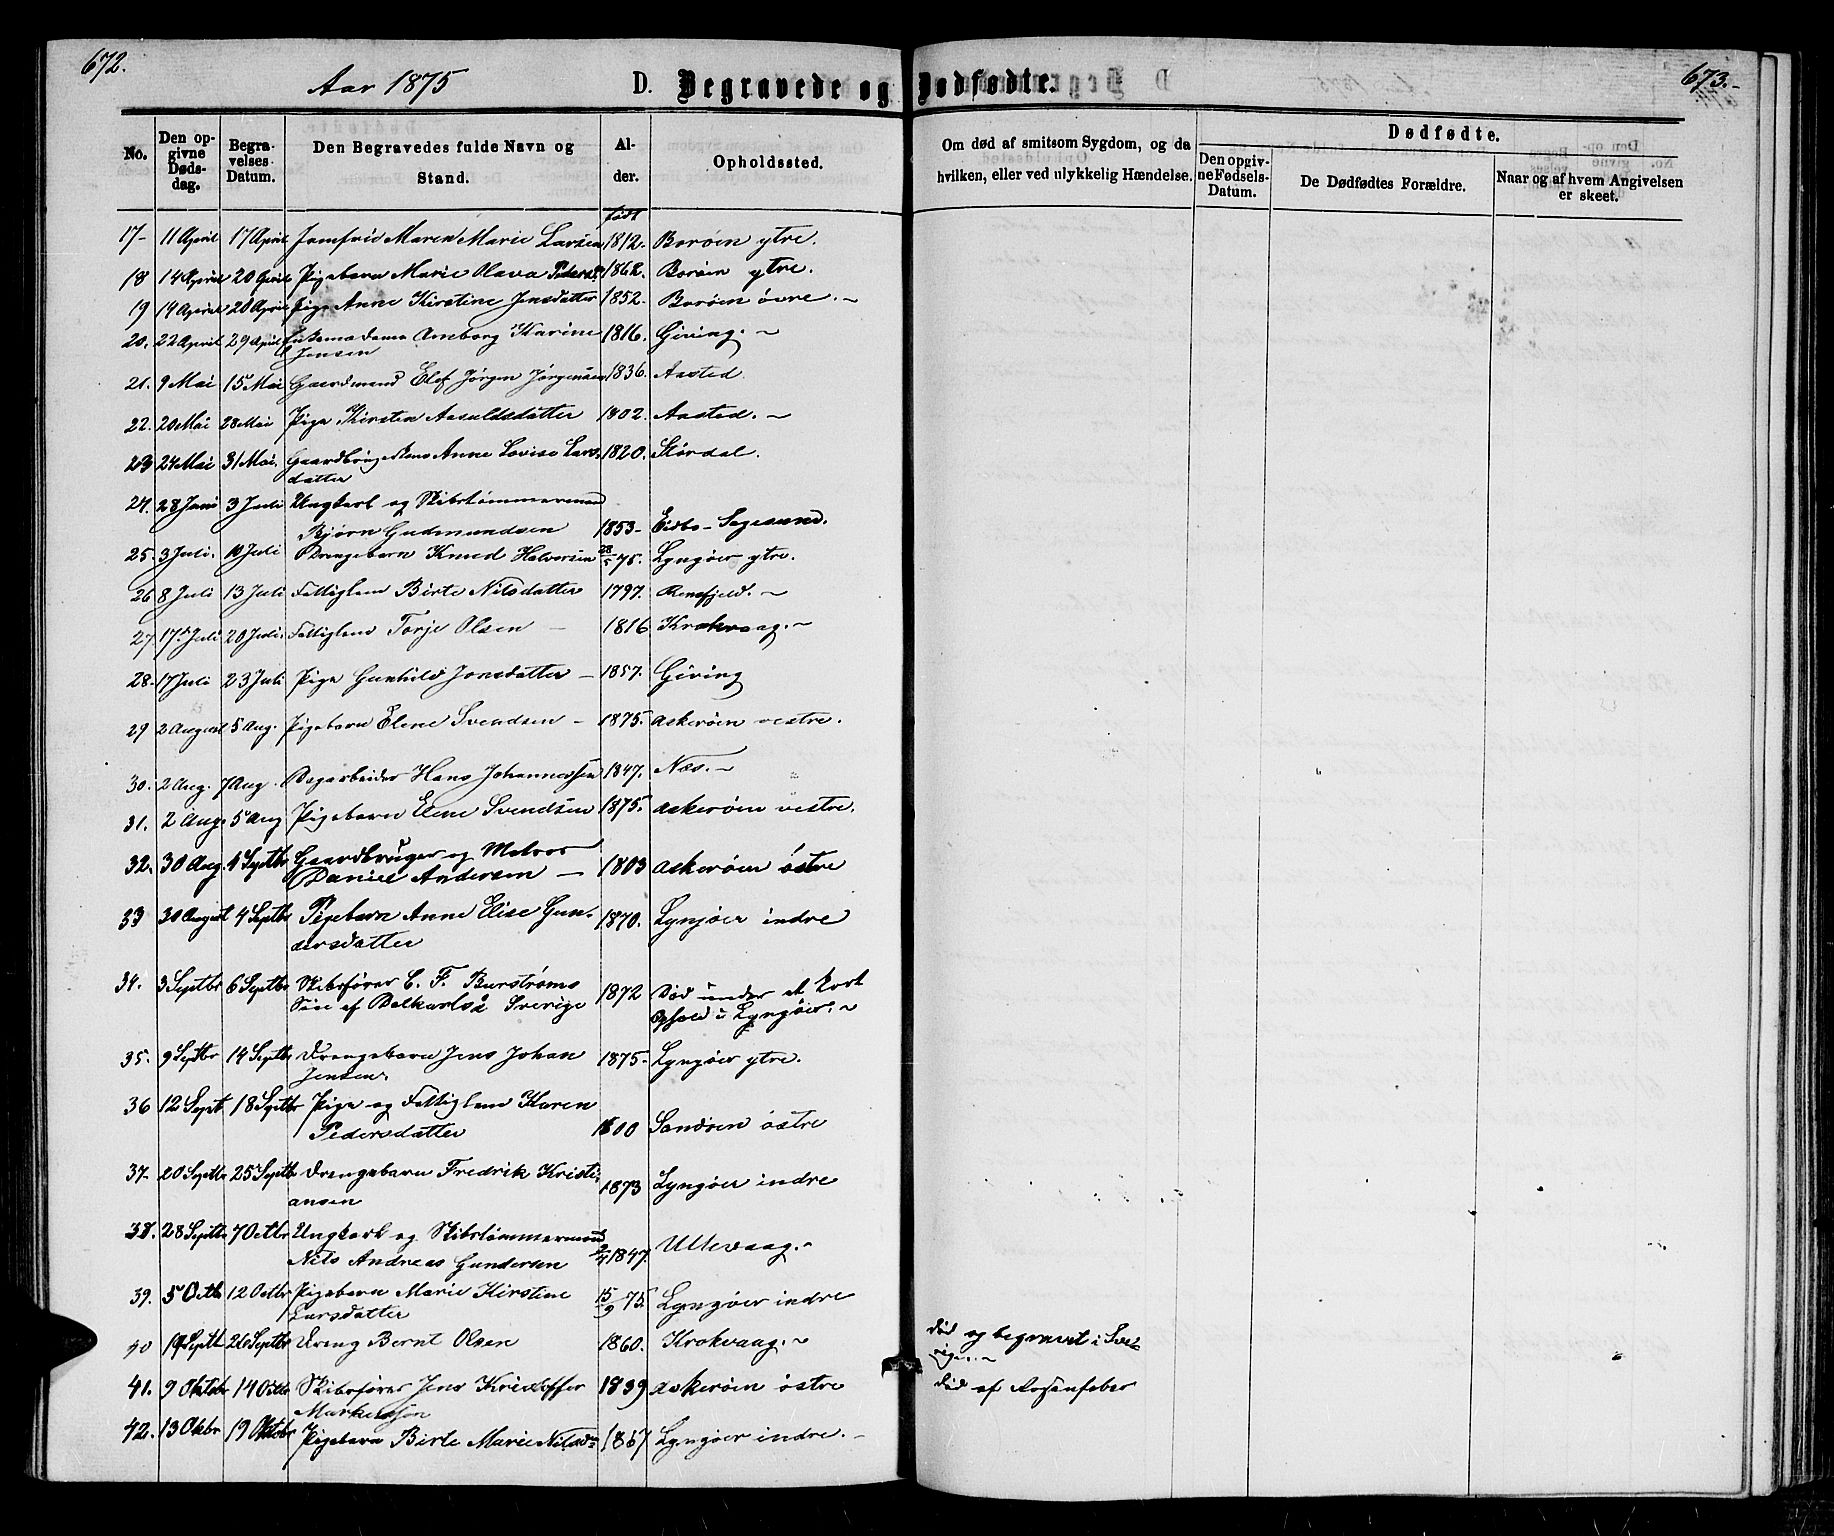 672.
Aar 1875
D. Begravede og Dødfødte.
673.
No.
Den opgivne Dødsdag.
Begravelses Datum.
Den Begravedes fulde Navn og Stand.
Alder.
Opholdssted.
Om død af smitsom Sygdom, og da hvilken, eller ved ulykkelig Hændelse.
Dødfødte.
Den opgivne Fødsels-Datum.
De Dødfødtes Forældre.
Naar og af hvem Angivelsen er skeet.
født
17- 11 April 17 April Jomfrue Maren Marie Larsen 1812. Borøen ytre.
18 14 April 20 April Pigebarn Marie Olava Peders. 1862. Borøen ytre.
19 14 April 20 April Pige Anne Kirstine Jensdatter 1852. Borøen övre. -
20. 22 April 29 April Amborg Karine 1816. Giving. -
Jensen
21. 9 Mai 15 Mai Gaardmand Elef Jørgen Jørgensen 1836. Aasted
22. 20 Mai 28 Mai Pige Kirsten Aasuldsdatter 1802. Aasted. -
23 24 Mai 31 Mai. Anne Lovise Lars- 1820. Stórdal.
datter
24. 28 Juni 3 Juli Ungkarl og Skibstømmermand
Bjørn Gudmundsen 1853- Eidbo-Sagesund.
25. 3 Juli. 10 Juli Drengebarn Knud Halvorsen 28/5 75. Lyngøer ytre.
26 8 Juli 13 Juli Fattiglem Birte Nilsdatter 1797. -
27 17 Juli 20 Juli. Fattiglem Torje Olsen - 1816 Krokvaag. -
28. 17 Juli 23 Juli Pige Gunhild Jonsdatter - 1857. Giving
29 2 August 5 Aug. Pigebarn Elene Svendsen - 1875. Askerøen vestre.
30. 2 Aug. 7 Aug. Dagarbeider Hans Johannessen 1847. Næs. -
31. 2 Aug. 5 Aug Pigebarn Elene Svendsen 1875. Askerøen vestre.
32. 30 Aug. 4 Septbr Gaardbruger og Matros
Daniel Andersen - 1803 Askerøen östre
33 30 August 4 Septbr Pigebarn Anne Elise Gun- 1870. Lyngøer indre
dersdatter
34. 3 Septbr 6 Septbr Skibsfører C. F. Burstrøms
Søn af Sverige 1872 Død under et kort
Ophold i Lyngøer. -
35. 9 Septbr 14 Septbr Drengebarn Jens Johan 1875. Lyngøer ytre.
Jensen.
36 12 Sept 18 Septbr Pige og Fattiglem Karen
Pedersdatter 1800 Sandøen östre
37- 20 Septbr 25 Septbr Drengebarn Fredrik Kristi-
ansen 1873 Lyngøer indre
38. 28 Septbr 7 Octbr Ungkarl og Skibstømmermand
Nils Andreas Gundersen 1847. Ullevaag. -
39. 5 Octbr 12 Octbr Pigebarn Marie Kirstine 15/9 75. Lyngøer indre
Larsdatter
40 19 Septbr 26 Septbr Dreng Bernt Olsen 1860. Krokvaag. - død og begravet i Sve-
rige. -
41. 9 Oktobr 14 Octbr Skibsfører Jens Kristoffer 1839 Askerøen östre død af Rosenfeber
Markussen
42. 13 Okbr 19 Oktobr Pigebarn Birte Marie Nilsd. 1867 Lyngøer indre. -